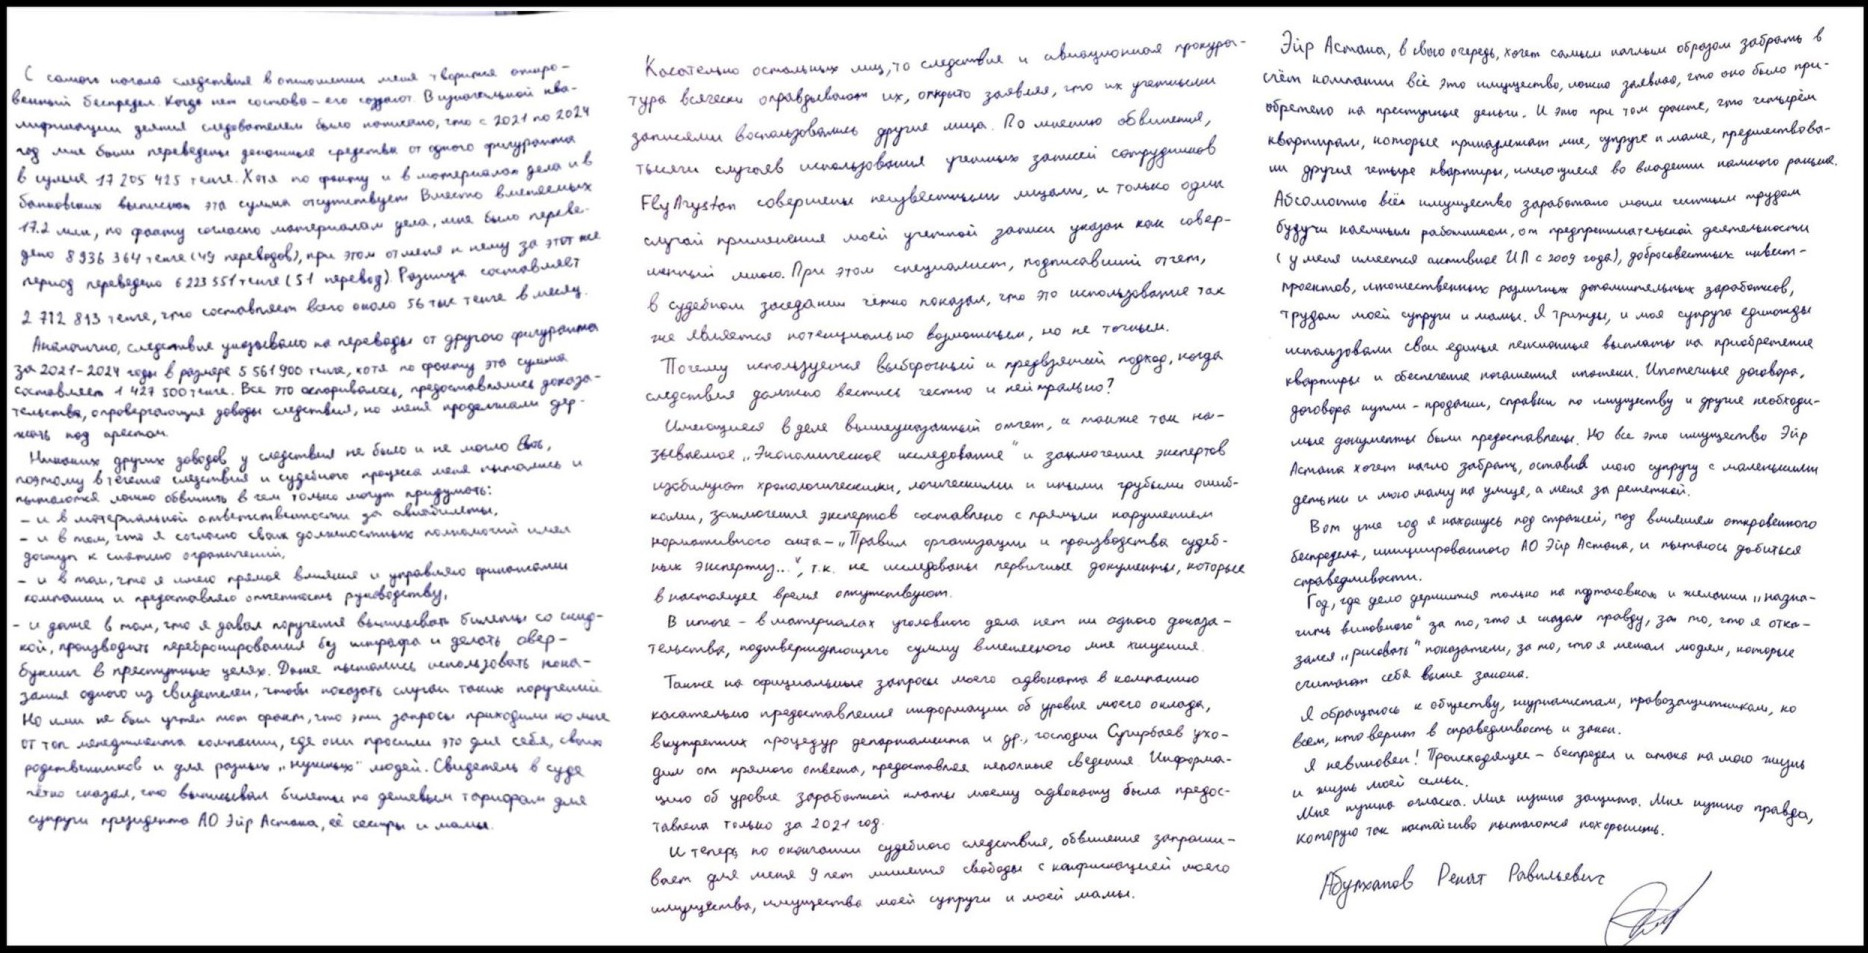 С самого начала следствия в отношении меня творится откро-
венный беспредел. Когда нет состава - его создают. В изначальной ква-
лификации деяния следователем было написано, что с 2021 по 2024
год мне были переведены денежные средства от одного фигуранта
в сумме 17 205 425 тенге. Хотя по факту и в материалах дела и в
банковских выписках эта сумма отсутствует. Вместо вменяемых
17.2 млн, по факту согласно материалам дела, мне было переве-
дено 8 936 364 тенге (49 переводов), при этом от меня к нему за этот же
период переведено 6 223 551 тенге (51 перевод). Разница составляет
2 712 813 тенге, что составляет всего около 56 тыс тенге в месяц.
Аналогично, следствие указывало на переводы от другого фигуранта
за 2021-2024 годы в размере 5 561 900 тенге, хотя по факту эта сумма
составляет 1 427 500 тенге. Все это оспаривалось, предоставлялись доказа-
тельства, опровергающие доводы следствия, но меня продолжали дер-
жать под арестом.
Никаких других доводов у следствия не было и не могло быть,
поэтому в течение следствия и судебного процесса меня пытались и
пытаются ложно обвинить в чем только могут придумать:
- и в материальной ответственности за авиабилеты,
- и в том, что я согласно своих должностных полномочий имел
доступ к снятию ограничений,
- и в том, что я имею прямое влияние и управляю финансами
компании и предоставляю отчетность руководству,
- и даже в том, что я давал поручения выписывать билеты со скид-
кой, производить перебронирования без штрафа и делать овер-
букинг в преступных целях. Даже пытались использовать пока-
зания одного из свидетелей, чтобы показать случаи таких поручений.
Но ими не был учтен тот факт, что эти запросы приходили ко мне
от топ менеджмента компании, где они просили это для себя, своих
родственников и для разных „нужных" людей. Свидетель в суде
чётко сказал, что выписывал билеты по дешевым тарифам для
супруги президента АО Эйр Астана, её сестры и мамы.
Касательно остальных лиц, то следствие и авиационная прокура-
тура всячески оправдывают их, открыто заявляя, что их учетными
записями воспользовались другие лица. По мнению обвинения,
тысячи случаев использования учетных записей сотрудников
FlyArystan совершены неизвестными лицами, и только один
случай применения моей учетной записи указан как совер-
шенный мною. При этом специалист, подписавший отчет,
в судебном заседании четко показал, что это использование так
же является потенциально возможным, но не точным.
Почему используется выборочный и предвзятый подход, когда
следствия должно вестись честно и нейтрально?
Имеющиеся в деле вышеуказанный отчет, а также так на-
зываемое „Экономическое исследование" и заключение экспертов
изобилуют хронологическими, логическими и иными грубыми ошиб-
ками, заключение экспертов составлено с прямым нарушением
нормативного акта - „Правил организации и производства судеб-
ных экспертиз...", т.к. не исследованы первичные документы, которые
в настоящее время отсутствуют.
В итоге - в материалах уголовного дела нет ни одного доказа-
тельства, подтверждающего сумму вменяемого мне хищения.
Также на официальные запросы моего адвоката в компанию
касательно предоставления информации об уровне моего оклада,
внутренних процедур департамента и др., господин Сугирбаев ухо-
дил от прямого ответа, предоставляя неполные сведения. Информа-
цию об уровне заработной платы моему адвокату была предос-
тавлена только за 2021 год.
И теперь, по окончании судебного следствия, обвинение запраши-
вает для меня 9 лет лишения свободы с конфискацией моего
имущества, имущества моей супруги и моей мамы.
Эйр Астана, в свою очередь, хочет самым наглым образом забрать в
счёт компании всё это имущество, ложно заявляя, что оно было при-
обретено на преступные деньги. И это при том факте, что четырём
квартирам, которые принадлежат мне, супруге и маме, предшествова-
ли другие четыре квартиры, имеющиеся во владении намного раньше.
Абсолютно всё имущество заработано моим честным трудом
будучи наемным работником, от предпринимательской деятельности
(у меня имеется активное ИП с 2009 года), добросовестных инвест-
проектов, множественных различных дополнительных заработков,
трудом моей супруги и мамы. Я трижды, и моя супруга единожды
использовали свои единые пенсионные выплаты на приобретение
квартиры и обеспечение погашения ипотеки. Ипотечные договора,
договора купли-продажи, справки по имуществу и другие необходи-
мые документы были предоставлены. Но все это имущество Эйр
Астана хочет нагло забрать, оставив мою супругу с маленькими
детьми и мою маму на улице, а меня за решеткой.
Вот уже год я нахожусь под стражей, под влиянием откровенного
беспредела, инициированного АО Эйр Астана, и пытаюсь добиться
справедливости.
Год, где дело держится только на подтасовках и желании „назна-
чить виновного" за то, что я сказал правду, за то, что я отка-
зался „рисовать" показатели, за то, что я мешал людям, которые
считают себя выше закона.
Я обращаюсь к обществу, журналистам, правозащитникам, ко
всем, кто верит в справедливость и закон.
Я невиновен! Происходящее - беспредел и атака на мою жизнь
и жизнь моей семьи.
Мне нужна огласка. Мне нужна защита. Мне нужна правда,
которую так настойчиво пытаются похоронить.
Абулханов Ренат Равильевич